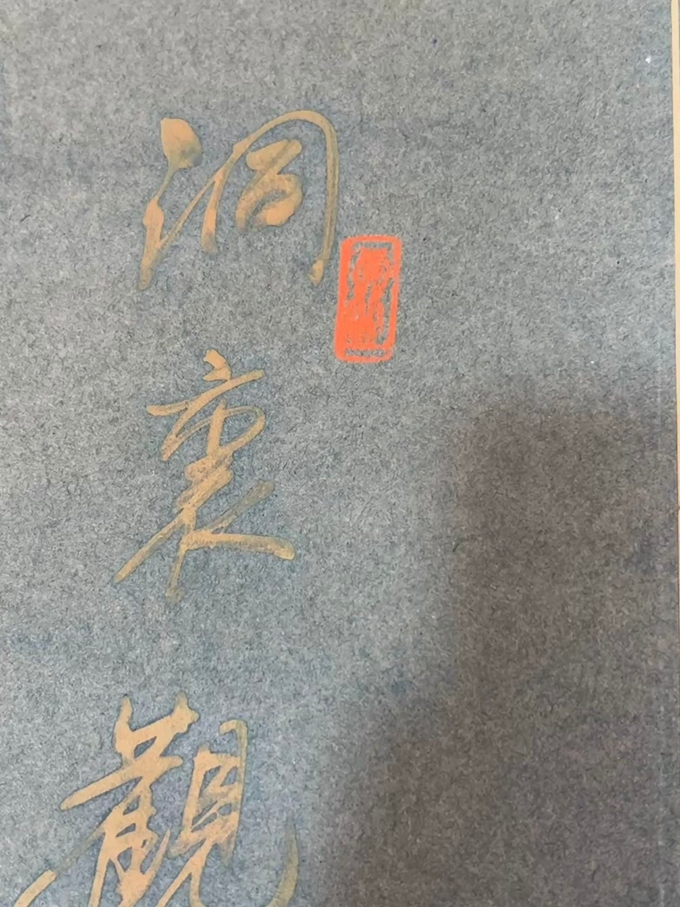 洞裏觀